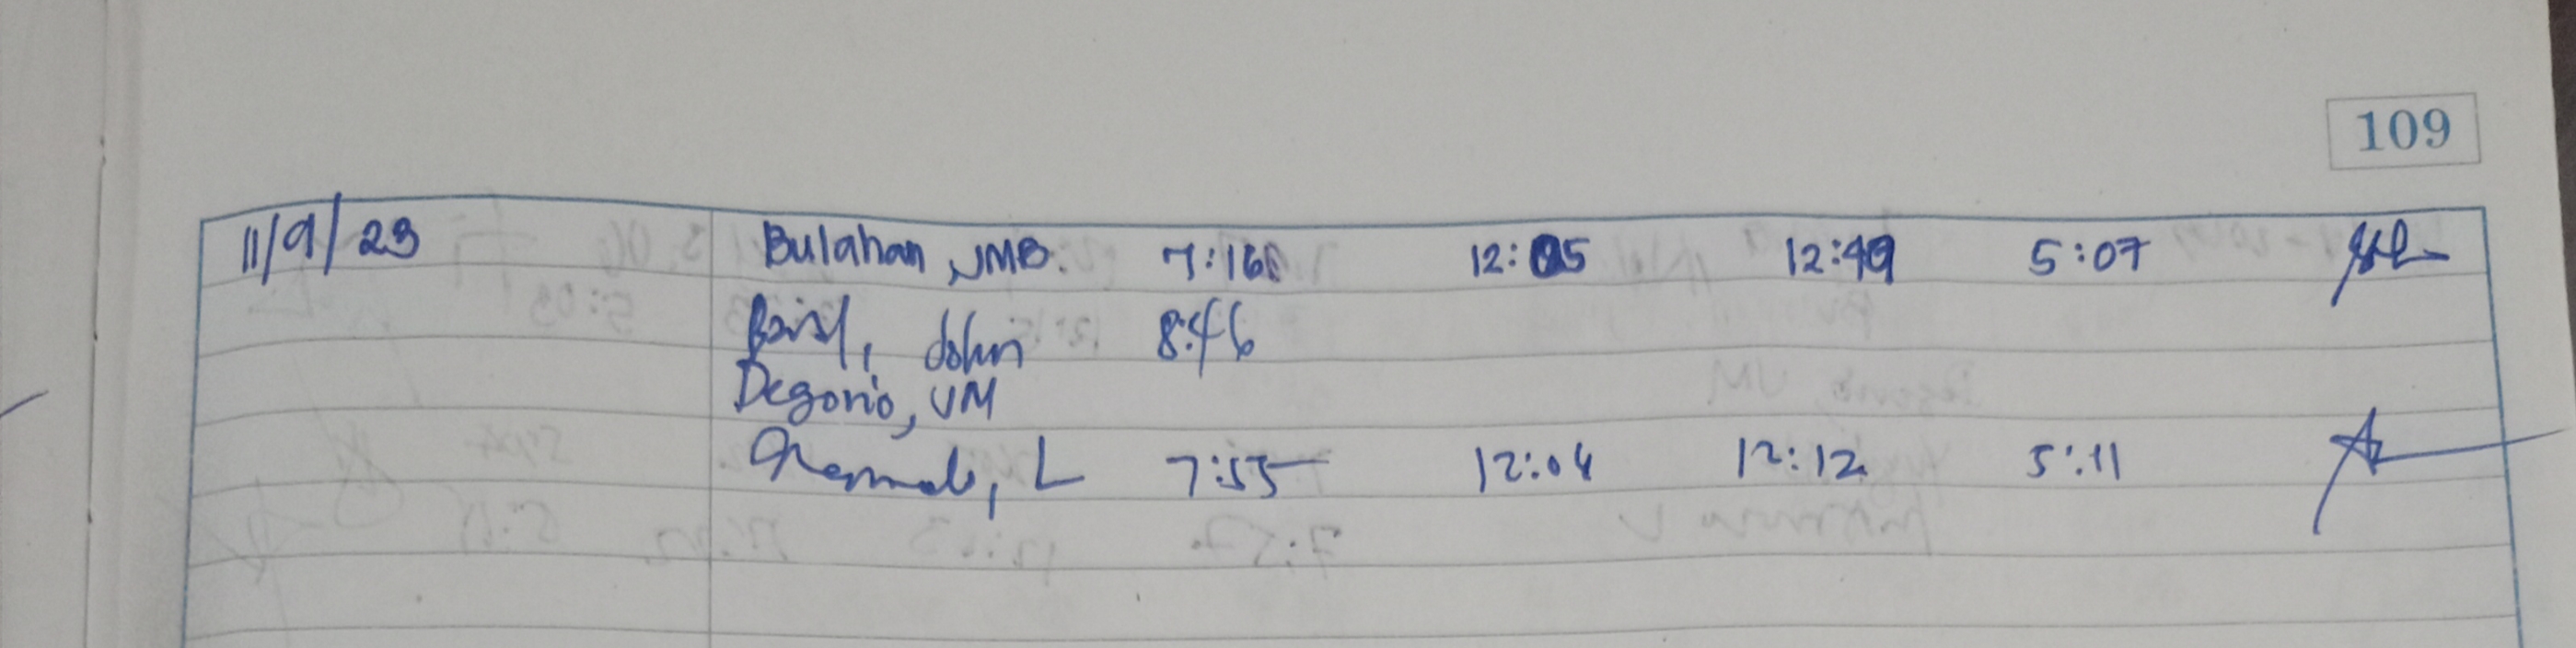 109
11/9/23 Bulahan, JMB. 7:16 12:05 12:49 5:07
John 8:46
Degorio, VM
L 7:55 12:04 12:12 5:11